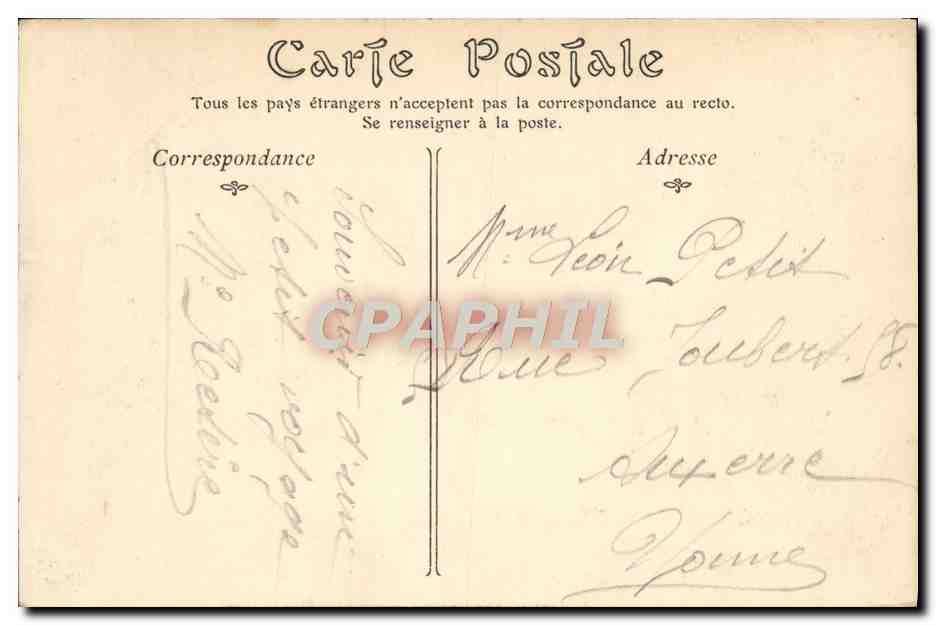 Carte Postale
Tous les pays étrangers n'acceptent pas la correspondance au recto.
Se renseigner à la poste.
Correspondance
Adresse
Souvenir d'un
petit voyage
Mme Léon Petit
Rue Joubert 58.
Auxerre
Yonne
CPAPHIL